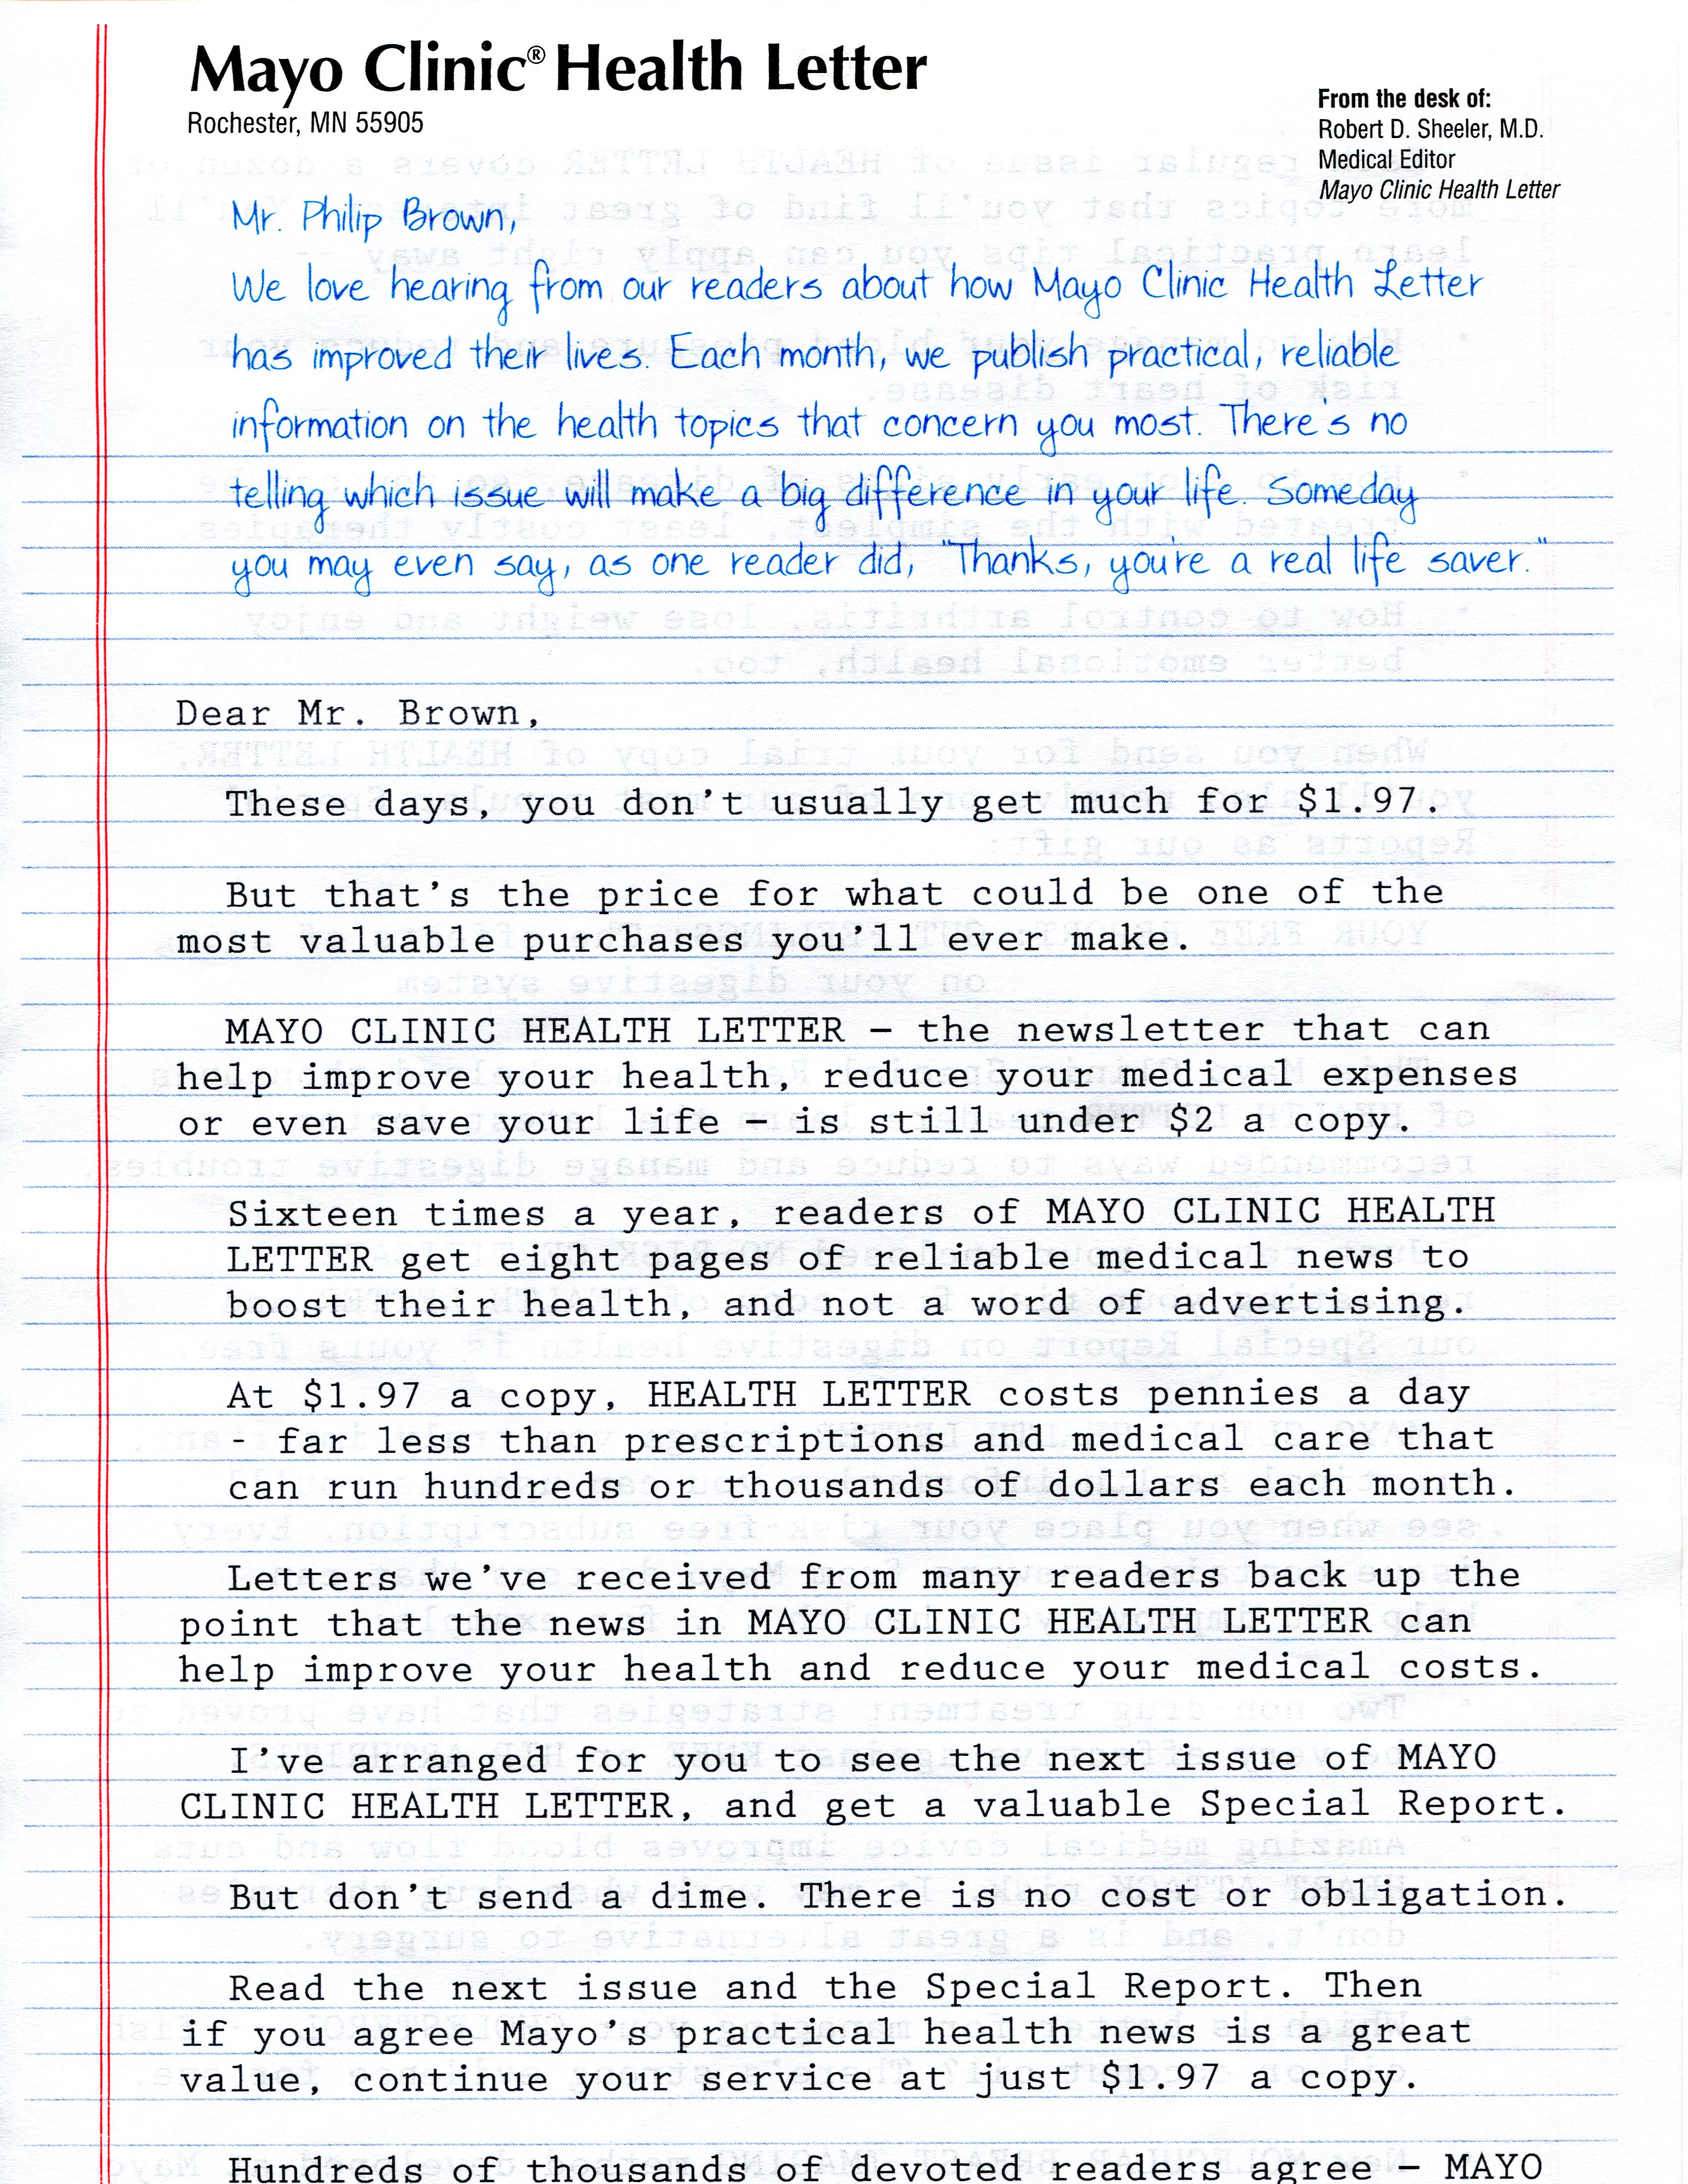 Mayo Clinic® Health Letter
Rochester, MN 55905
From the desk of:
Robert D. Sheeler, M.D.
Medical Editor
Mayo Clinic Health Letter
Mr. Philip Brown,
We love hearing from our readers about how Mayo Clinic Health Letter
has improved their lives. Each month, we publish practical, reliable
information on the health topics that concern you most. There's no
telling which issue will make a big difference in your life. Someday
you may even say, as one reader did, "Thanks, you're a real life saver."
Dear Mr. Brown,
These days, you don't usually get much for $1.97.
But that's the price for what could be one of the
most valuable purchases you'll ever make.
MAYO CLINIC HEALTH LETTER – the newsletter that can
help improve your health, reduce your medical expenses
or even save your life – is still under $2 a copy.
Sixteen times a year, readers of MAYO CLINIC HEALTH
LETTER get eight pages of reliable medical news to
boost their health, and not a word of advertising.
At $1.97 a copy, HEALTH LETTER costs pennies a day
- far less than prescriptions and medical care that
can run hundreds or thousands of dollars each month.
Letters we've received from many readers back up the
point that the news in MAYO CLINIC HEALTH LETTER can
help improve your health and reduce your medical costs.
I've arranged for you to see the next issue of MAYO
CLINIC HEALTH LETTER, and get a valuable Special Report.
But don't send a dime. There is no cost or obligation.
Read the next issue and the Special Report. Then
if you agree Mayo's practical health news is a great
value, continue your service at just $1.97 a copy.
Hundreds of thousands of devoted readers agree – MAYO